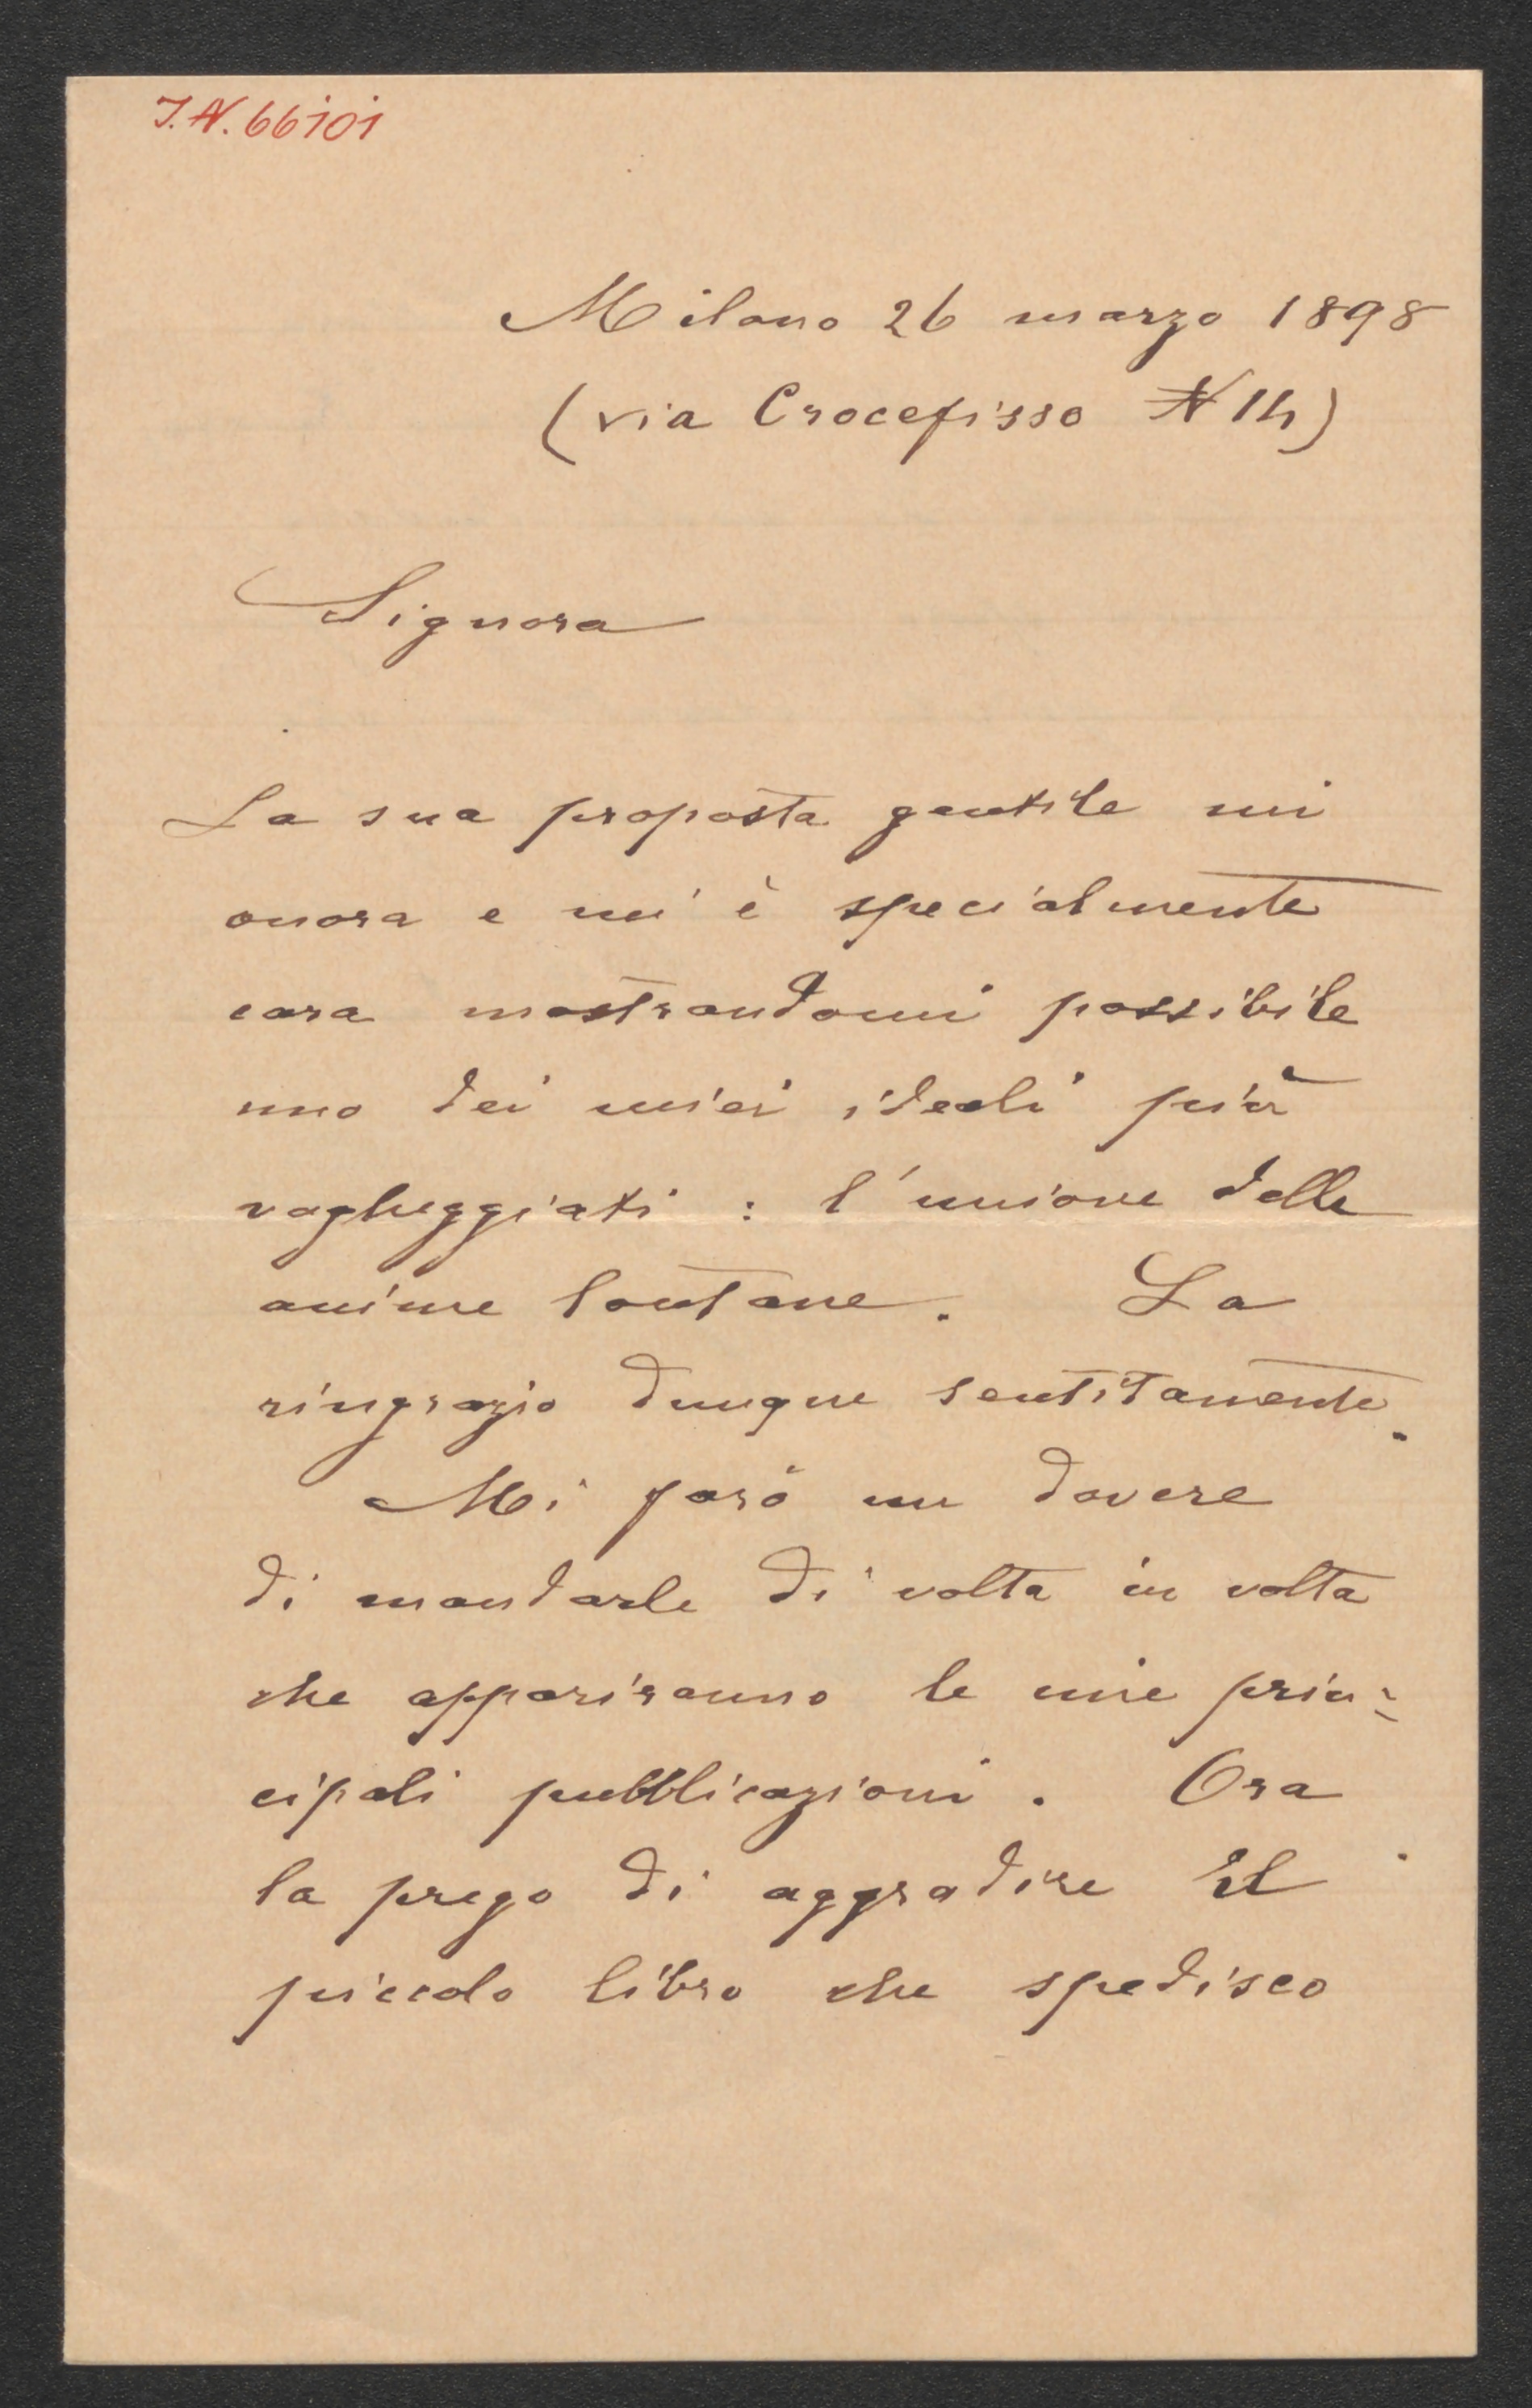 J.N. 66101
Milano 26 marzo 1898
(via Crocefisso N 14)
Signora
La sua proposta gentile mi
onora e mi è specialmente
cara mostrandomi possibile
uno dei miei ideali più
vagheggiati : l'unione delle
anime lontane. La
ringrazio dunque sentitamente.
Mi farò un dovere
di mandarle di volta in volta
che appariranno le mie prin=
cipali pubblicazioni. Ora
la prego di aggradire il
piccolo libro che spedisco